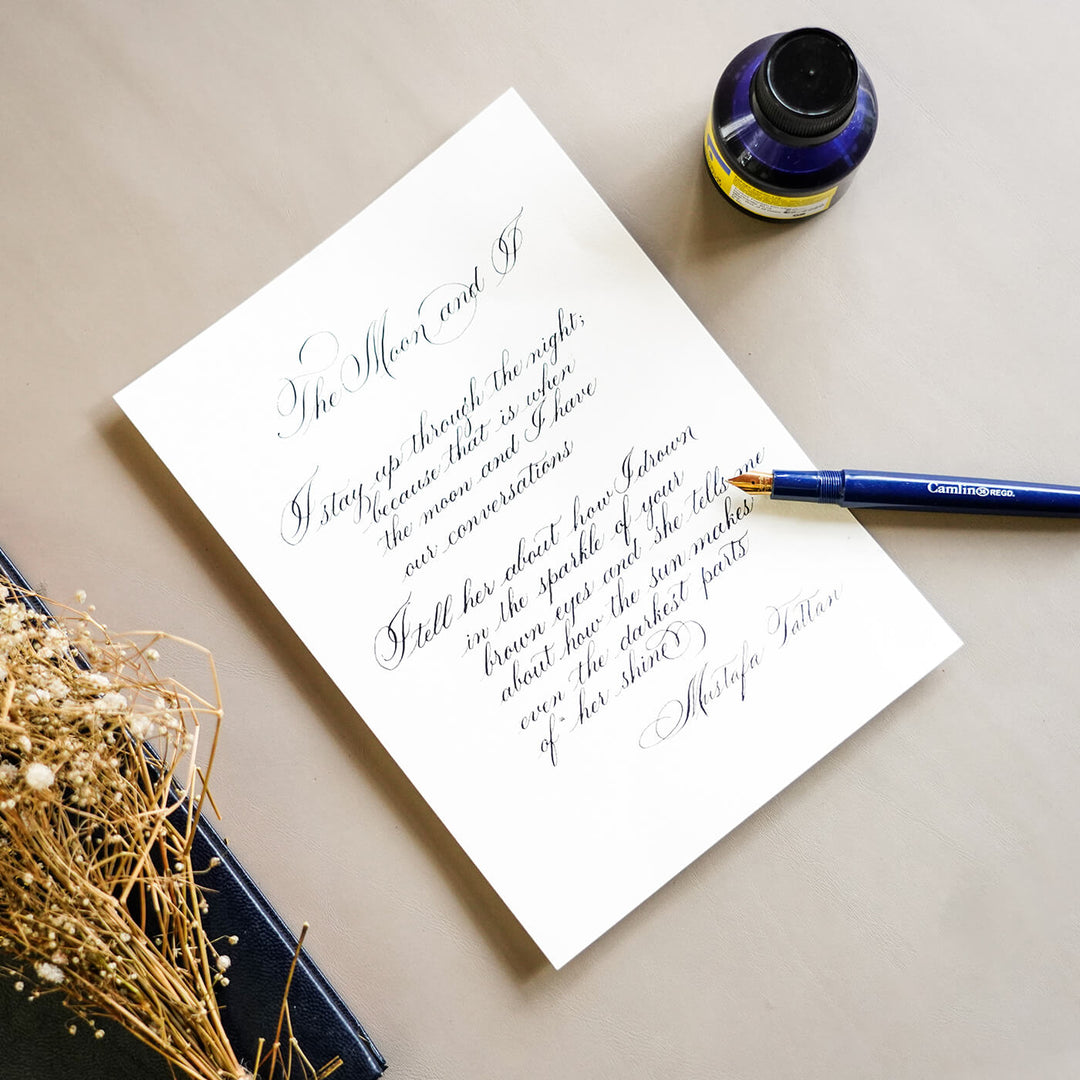 The Moon and I
I stay up through the night;
because that is when
the moon and I have
our conversations
I tell her about how I drown
in the sparkle of your
brown eyes and she tells me
about how the sun makes
even the darkest parts
of her shine
Mustafa Tattan
Camlin REGD.